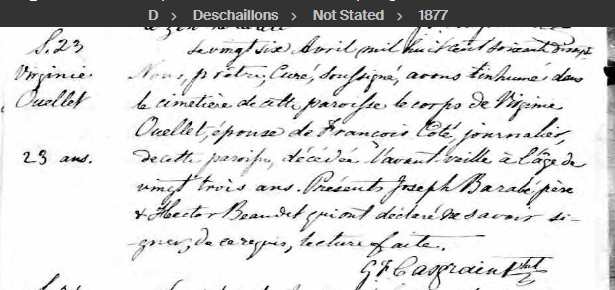 D > Deschaillons > Not Stated > 1877
S. 23
Le vingt six Avril mil huit cent soixante dix sept
Virginie
Nous, prêtre, Curé, soussigné, avons inhumé dans
Ouellet
le cimetière de cette paroisse le corps de Virginie
Ouellet, épouse de François Côté, journalier,
23 ans.
de cette paroisse, décédée l'avant veille à l'âge de
vingt trois ans. Présents Joseph Barabé père
& Hector Beaudet qui ont déclaré ne savoir si-
gner, de ce requis, lecture faite.
Casgrain Ptre